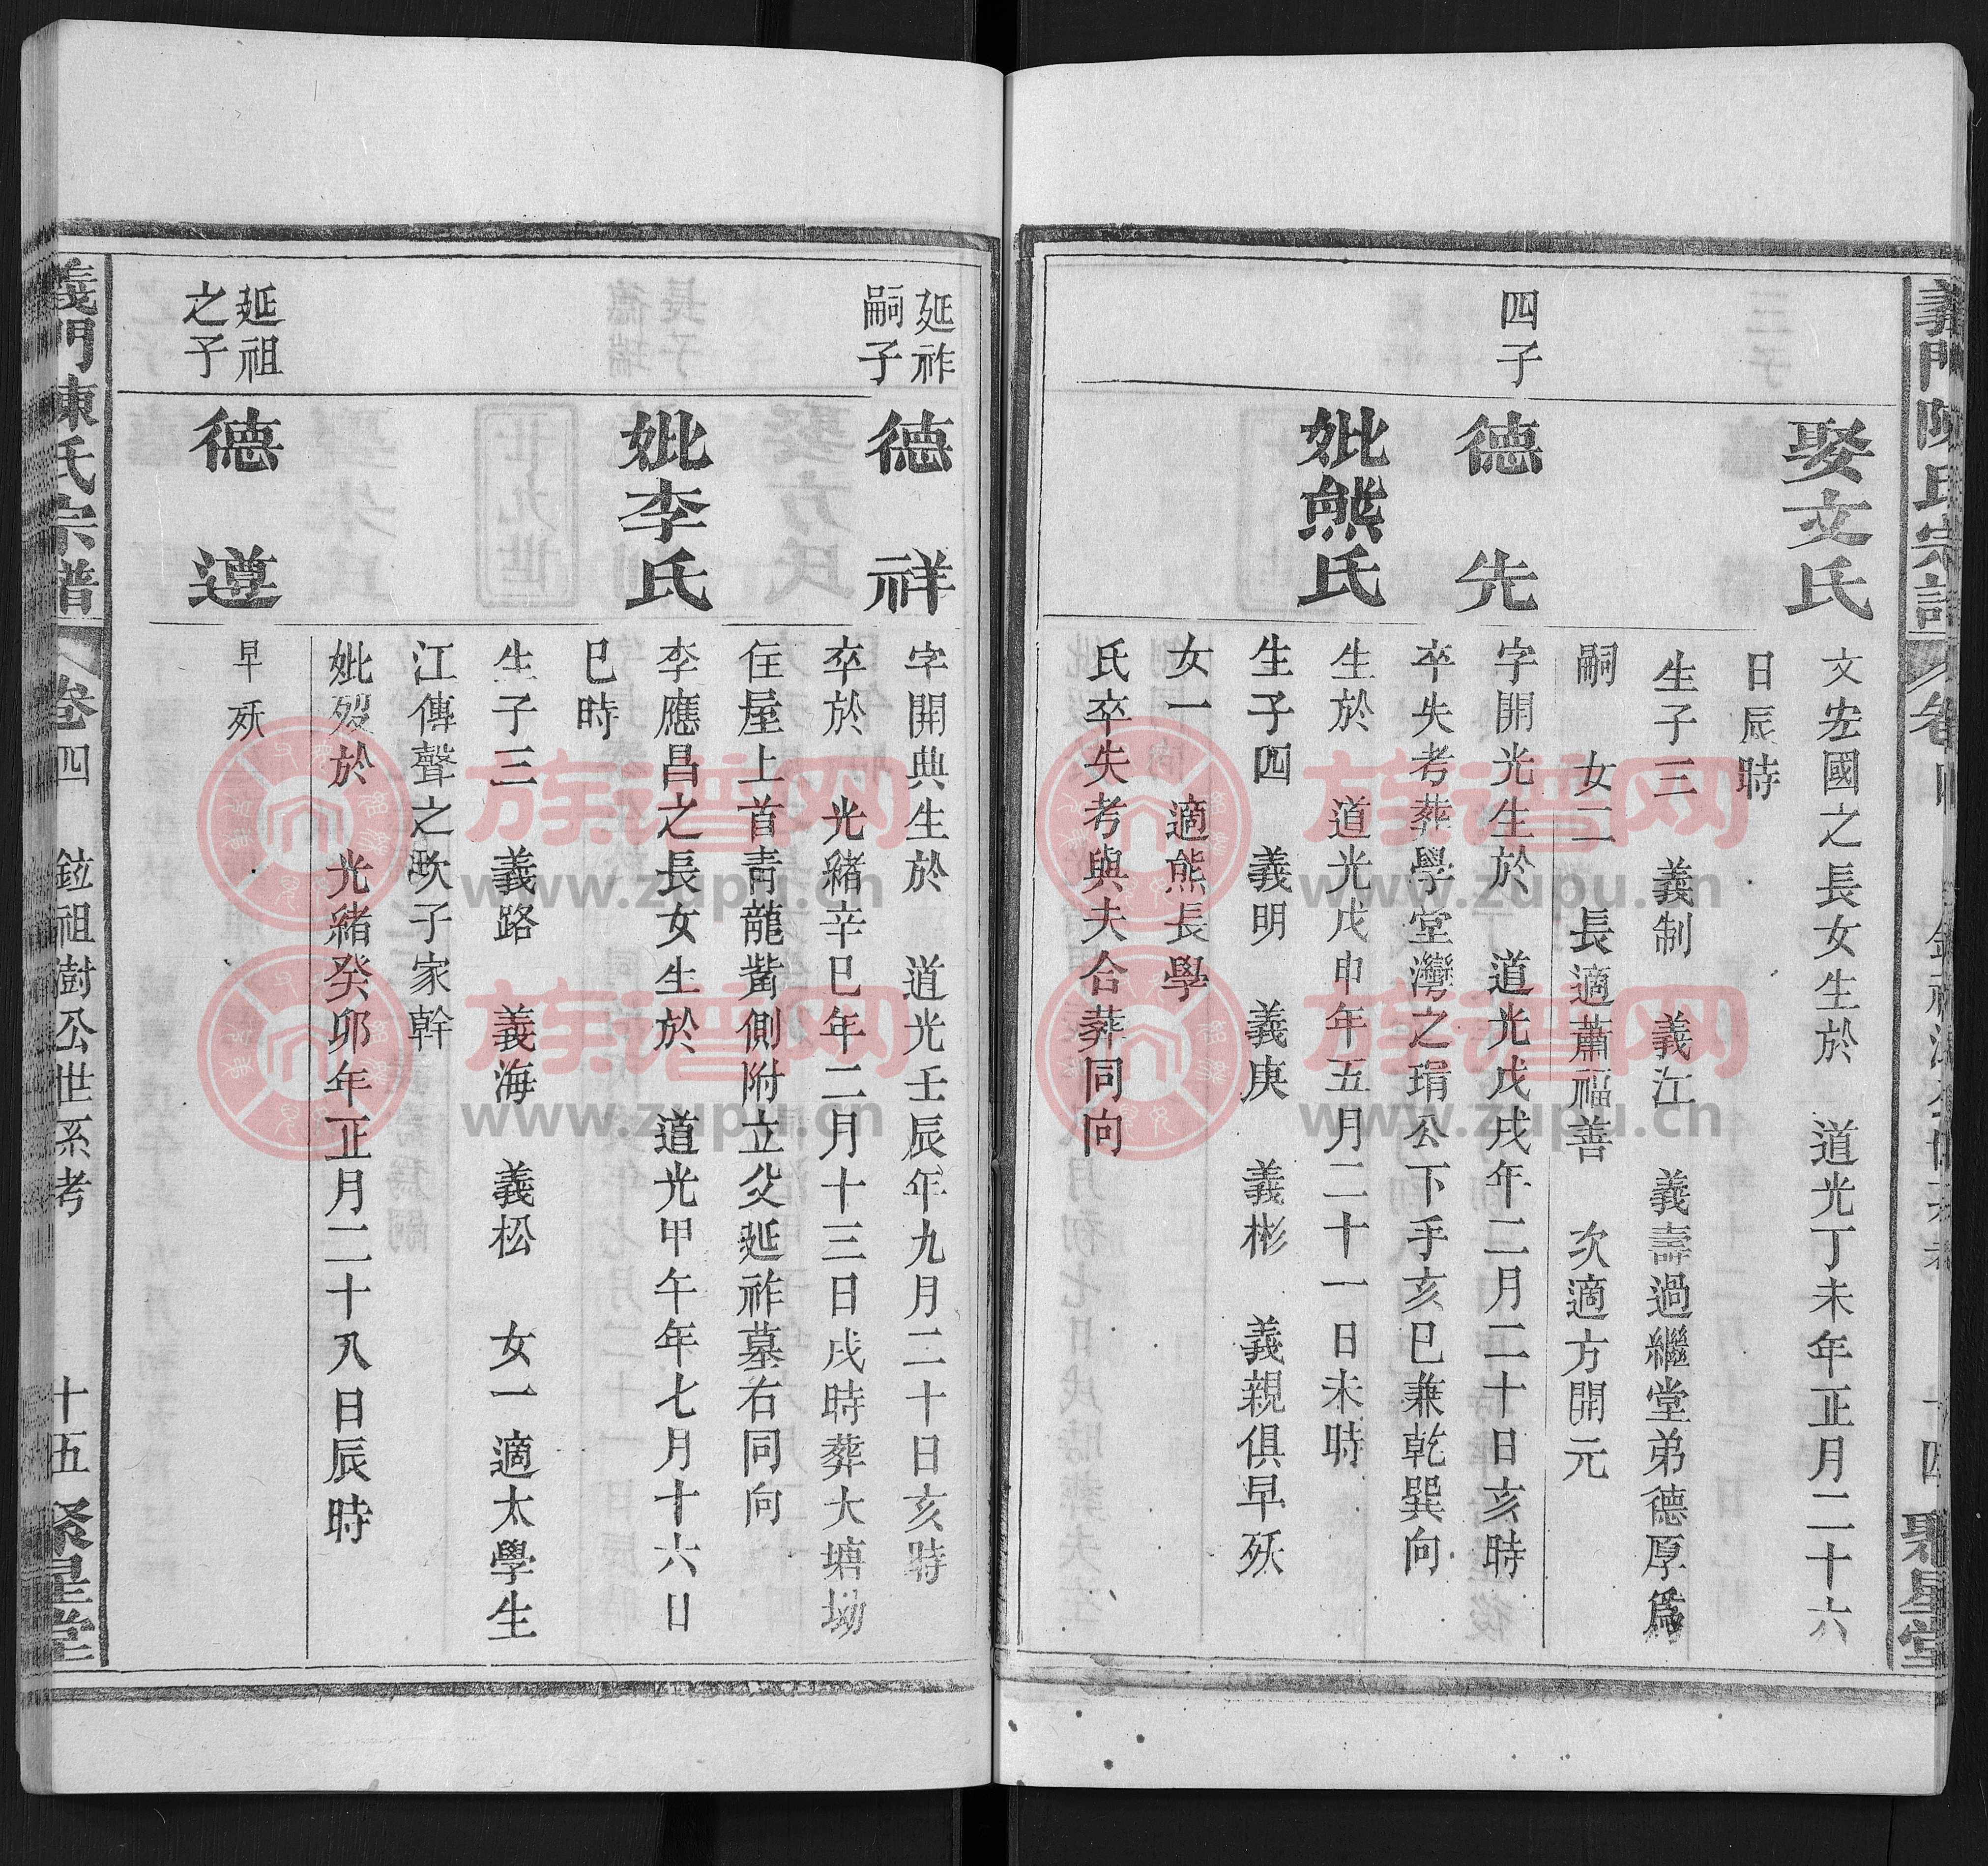 義門陳氏宗譜
卷四
十四
聚星堂
娶文氏
文宏國之長女生於 道光丁未年正月二十六
日辰時
生子三 義制 義江 義壽過繼堂弟德厚爲
嗣 女二 長適蕭福善 次適方開元
四子
德先
字開光生於 道光戊戌年二月二十日亥時
卒失考葬學堂灣之琄公下手亥巳兼乾巽向
妣熊氏
生於 道光戊申年五月二十一日未時
生子四 義明 義庚 義彬 義親俱早殀
女一 適熊長學
氏卒失考與夫合葬同向
延祚
嗣子
德祥
字開典生於 道光壬辰年九月二十日亥時
卒於 光緒辛巳年二月十三日戌時葬大塘坳
住屋上首青龍嘴側附立父延祚墓右同向
妣李氏
李應昌之長女生於 道光甲午年七月十六日
巳時
生子三 義路 義海 義松 女一適太學生
江傳聲之次子家幹
妣歿於 光緒癸卯年正月二十八日辰時
延祖
之子
德遵
早殀
義門陳氏宗譜
卷四
鉝祖澍公世系考
十五
聚星堂
族谱网
www.zupu.cn
族谱网
www.zupu.cn
族谱网
www.zupu.cn
族谱网
www.zupu.cn